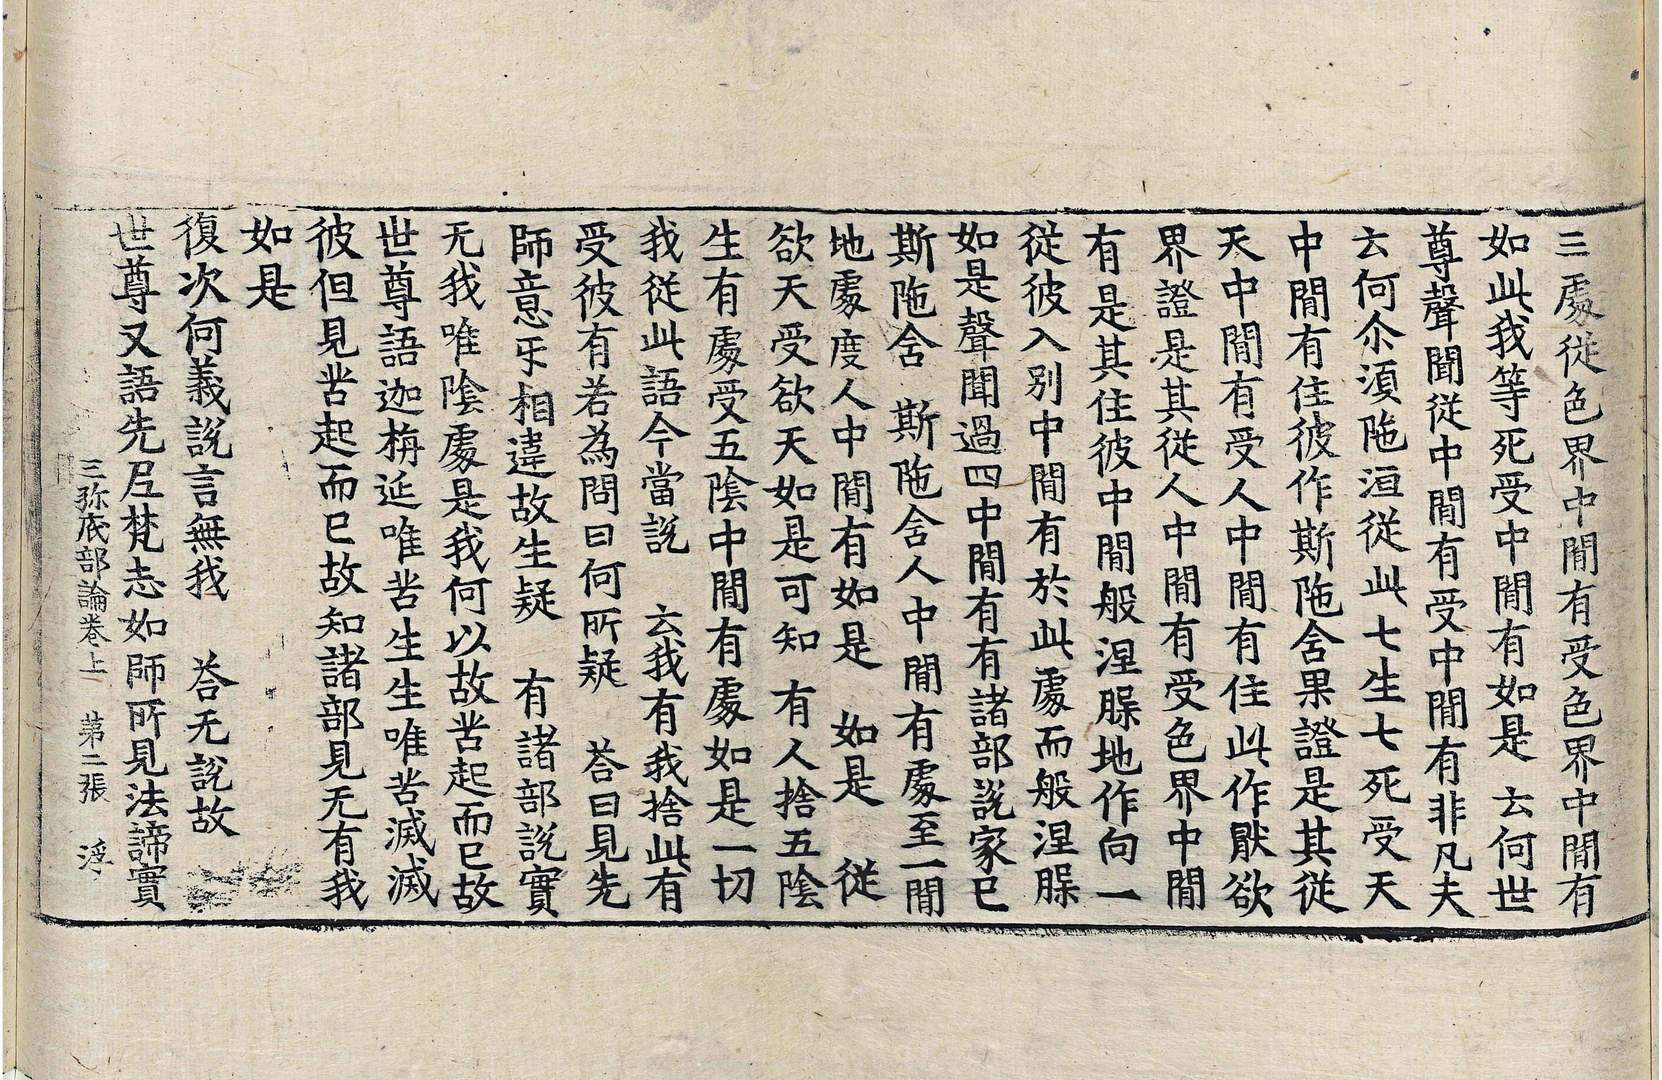 三處從色界中閒有受色界中閒有
如此我等死受中閒有如是 云何世
尊聲聞從中閒有受中閒有非凡夫
云何尒湏陁洹從此七生七死受天
中閒有住彼作斯陁含果證是其從
天中閒有受人中閒有住此作猒欲
界證是其從人中閒有受色界中閒
有是其住彼中閒般涅㬷地作向一
從彼入別中閒有於此處而般涅㬷
如是聲聞過四中閒有有諸部說家已
斯陁含 斯陁含人中閒有處至一閒
地處度人中閒有如是 如是 從
欲天受欲天如是可知 有人捨五隂
生有處受五隂中閒有處如是一切
我從此語今當說 云我有我捨此有
受彼有若為問曰何所疑 荅曰見先
師意㸦相違故生疑 有諸部說實
无我唯隂處是我何以故苦起而已故
世尊語迦栴延唯苦生生唯苦滅滅
彼但見苦起而已故知諸部見无有我
如是
復次何義說言無我 荅无說故
世尊又語先尼梵志如師所見法諦實
三弥底部論卷上 第二張 浮